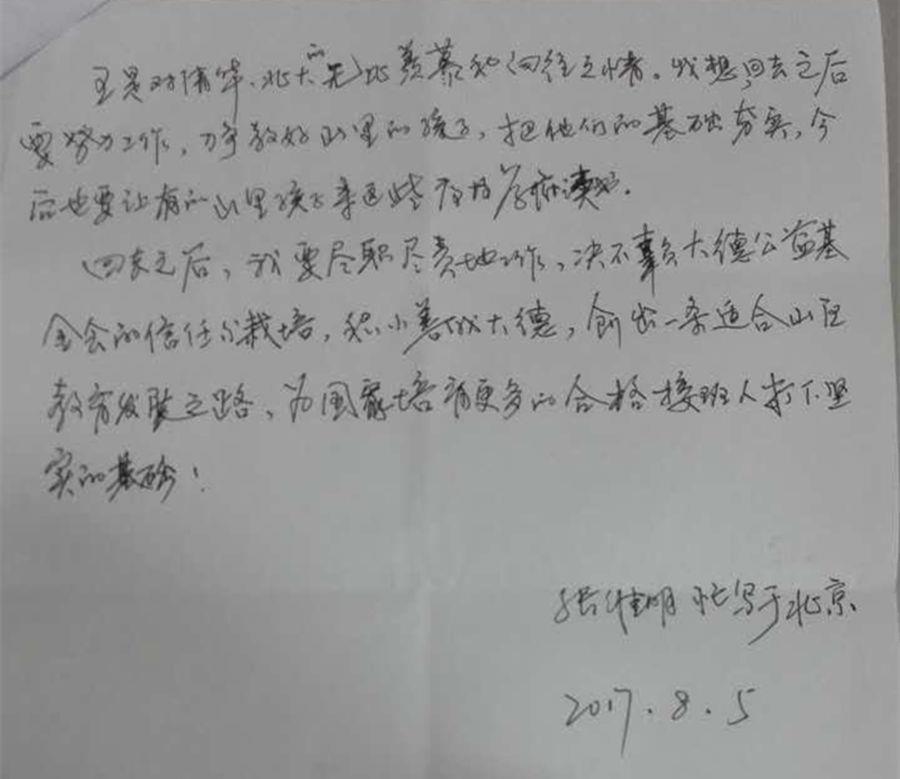 更是对清华、北大的无比羡慕和向往之情。我想回去之后
要努力工作，力争教好山里的孩子，把他们的基础夯实，今
后也要让有的山里孩子来这些高校学府读书.
回去之后，我要尽职尽责地工作，决不辜负大德公益基
金会的信任与栽培，积小善成大德，创出一条适合山区
教育发展之路，为国家培育更多的合格接班人打下坚
实的基础！
张佳明 忙写于北京
2017.8.5